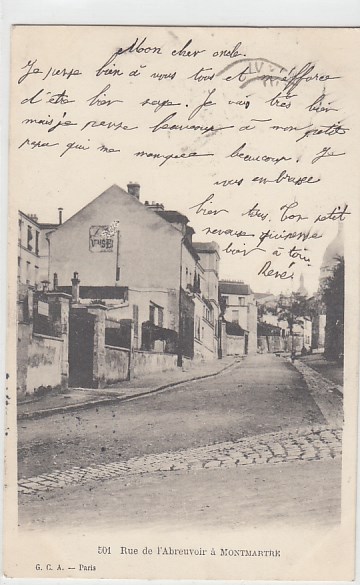 Mon cher oncle.
Je pense bien à vous tous et m'efforce
d'être bien sage. Je vais très bien
mais je pense beaucoup à mon petit
papa qui me manque beaucoup. Je
vous embrasse
bien tous. Ton petit
neveu qui pense
bien à toi.
René
501 Rue de l'Abreuvoir à MONTMARTRE
G. C. A. — Paris